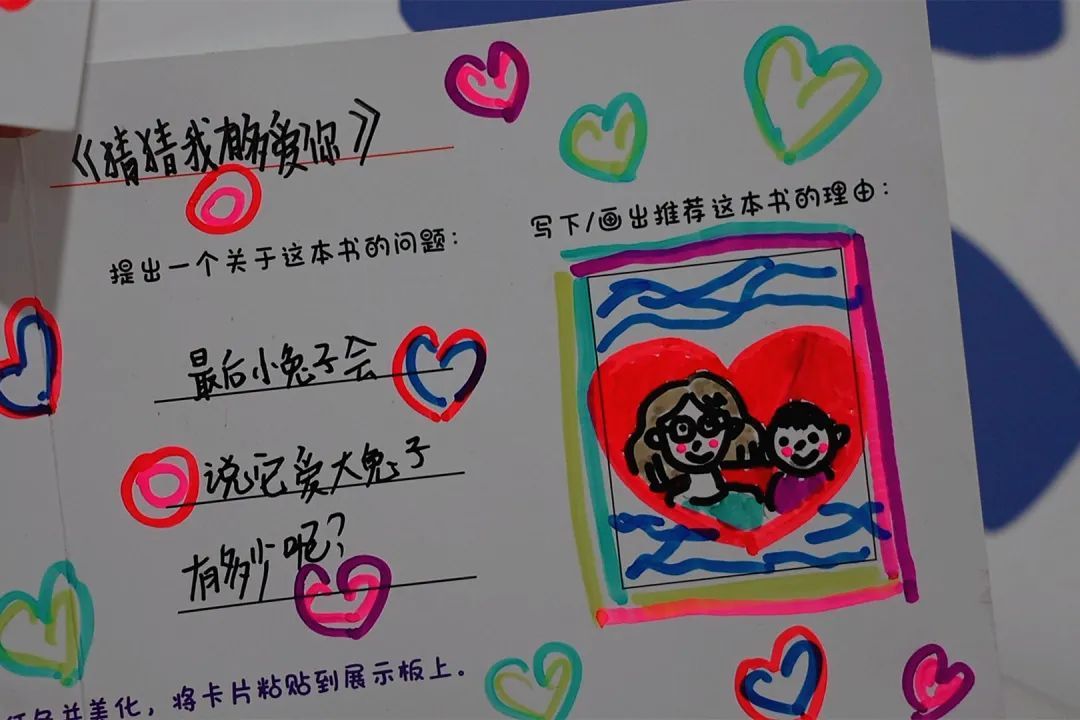 《猜猜我有多爱你》
提出一个关于这本书的问题：
最后小兔子会
说它爱大兔子
有多少呢？
写下/画出推荐这本书的理由：
并美化，将卡片粘贴到展示板上。